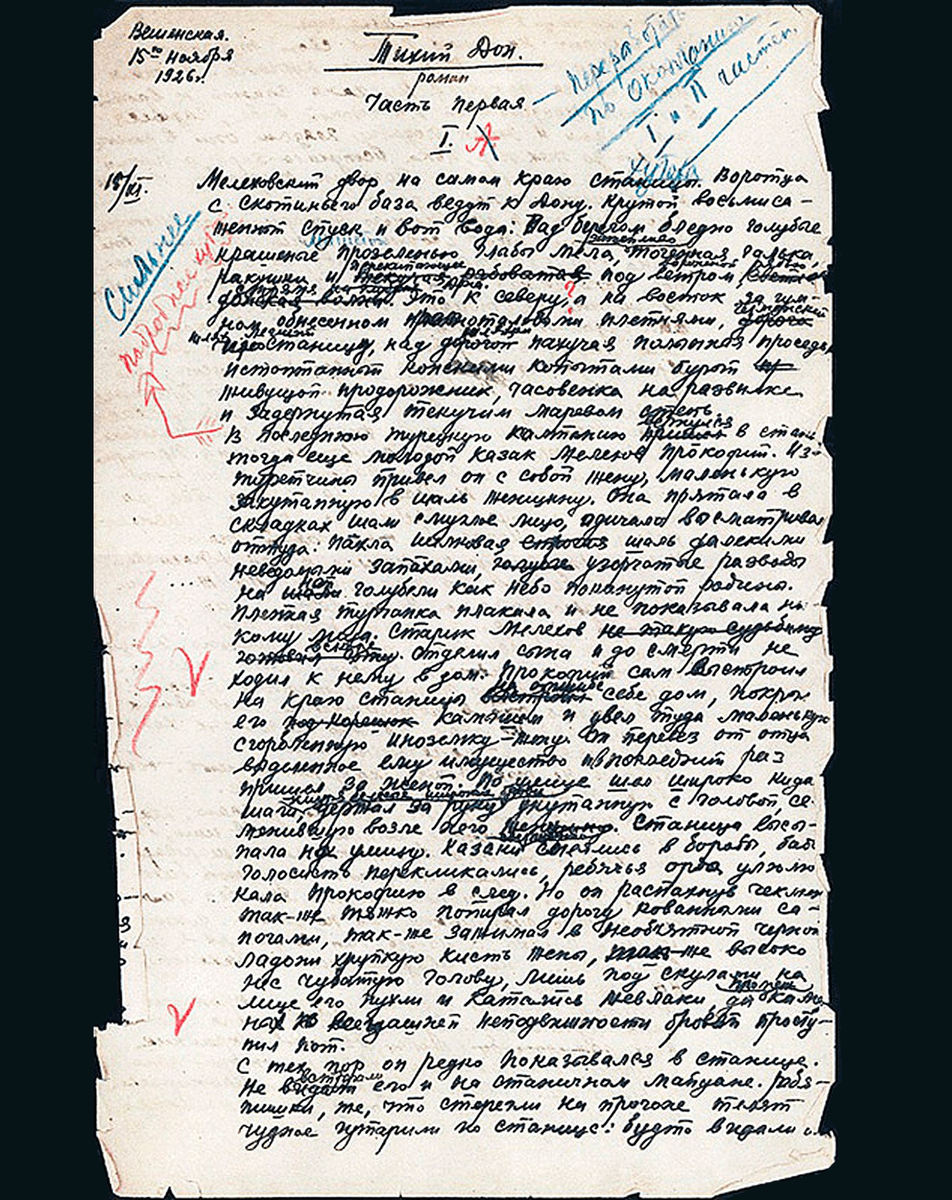 Вешенская.
15го ноября
1926г.
Тихий Дон.
роман
Часть первая
I.
Переработать
по окончании
I и II частей.
хутора
15/XI.
Сильнее
подробнее
Мелеховский двор на самом краю станицы. Воротца
с скотиньего база ведут к Дону. Крутой восьмиса-
женный спуск и вот вода: Над берегом бледно голубые
крашеные прозеленью глыбы мела, галька,
ракушки и под ветром
донская волна. Это к северу, а на восток за гум-
ном обнесенном плетнями,
станицу, над дорогой пахучая полынная проседь,
истоптанный конскими копытами бурый
живущой продорожник, часовенка на развилке
и задернутая текучим маревом степь.
В последнюю турецкую кампанию вернулся пришел в стани
тогда еще молодой казак Мелехов Прокофий. Из-
туретчины привел он с собой жену, маленькую
закутанную в шаль женщину. Она прятала в
складках шали смуглое лицо, одичало высматривая
оттуда: пахла шелковая строгая шаль далекими
неведомыми запахами, голубые узорчатые разводы
на ней голубели как небо покинутой родины.
Пленная турчанка плакала и не показывала ни-
кому лица. Старик Мелехов не такую судьбину
готовил сыну вскоре отделил сына и до смерти не
ходил к нему в дом. Прокофий сам выстроил
на краю станицы выстроил на отшибе себе дом, покрыл
его под корешок камышем и увел туда маленькую
сгорбленную иноземку-жену. Он перевез от отца
выделенное ему имущество и в последний раз
пришел за женой. По улице шел широко кидая
шаги, держал за руку укутанную с головой, се-
менившую возле него женщину. Станица высы-
пала на улицу. Казаки смеялись в бороды, бабы
голосисто перекликались, ребячья орда улюлю
кала Прокофию в след. Но он распахнув чекмень
так-же тяжко попирал дорогу кованными са-
погами, так-же зажимал в необъятной черной
ладони хрупкую кисть жены, так-же высоко
нес чубатую голову, лишь под скулами на
лице его пухли и катались желваки, да промеж камен
ных в всегдашней неподвижности бровей просту-
пил пот.
С тех пор он редко показывался в станице.
Не видали встречали его и на станичном майдане. Ребя-
тишки, те, что стерегли на прогоне телят
чудное гутарили по станице: будто видали